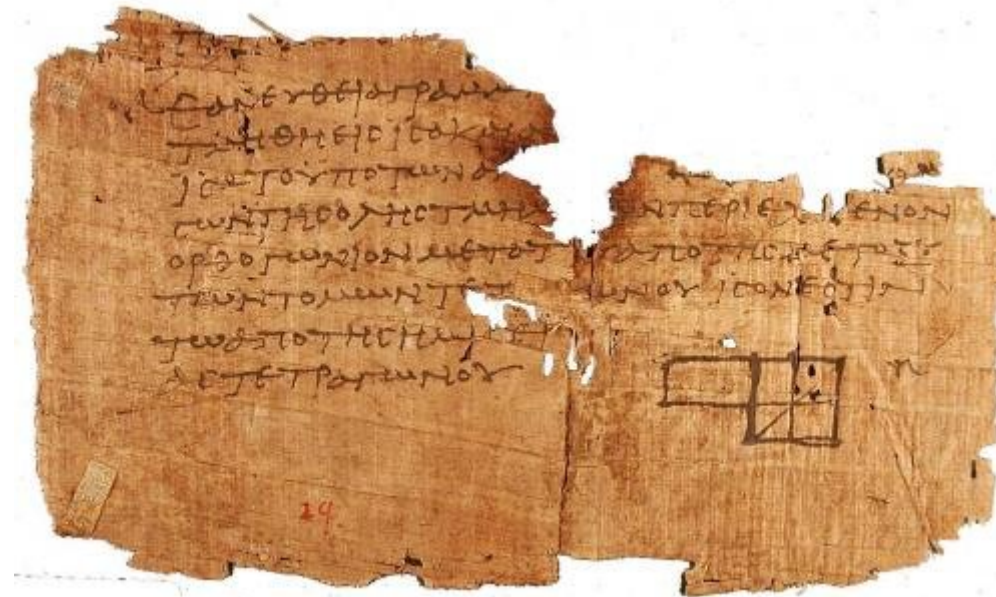 ΕΑΝΕΥΘΕΙΑΓΡΑΜΜ
ΤΜΗΘΗΕΙϹΙϹΑΚΑΙΑ
ΙϹΑΤΟΥΠΟΤΩΝΑ
ϹΩΝΤΗϹΟΛΗϹΤΜΗ ΝΠΕΡΙΕΧ ΕΝΟΝ
ΟΡΘΟΓΩΝΙΟΝΜΕΤΟΤ ΑΠΟΤΗϹΜΕΤΟΞΥ
ΤΩΝΤΟΜΩΝΤΕΤ ΩΝΟΥΙϹΟΝΕϹΤΙΝ
ΤΩΑΠΟΤΗϹΗΜΙϹΕΙ
ΑϹΤΕΤΡΑΓΩΝΟΥ
29